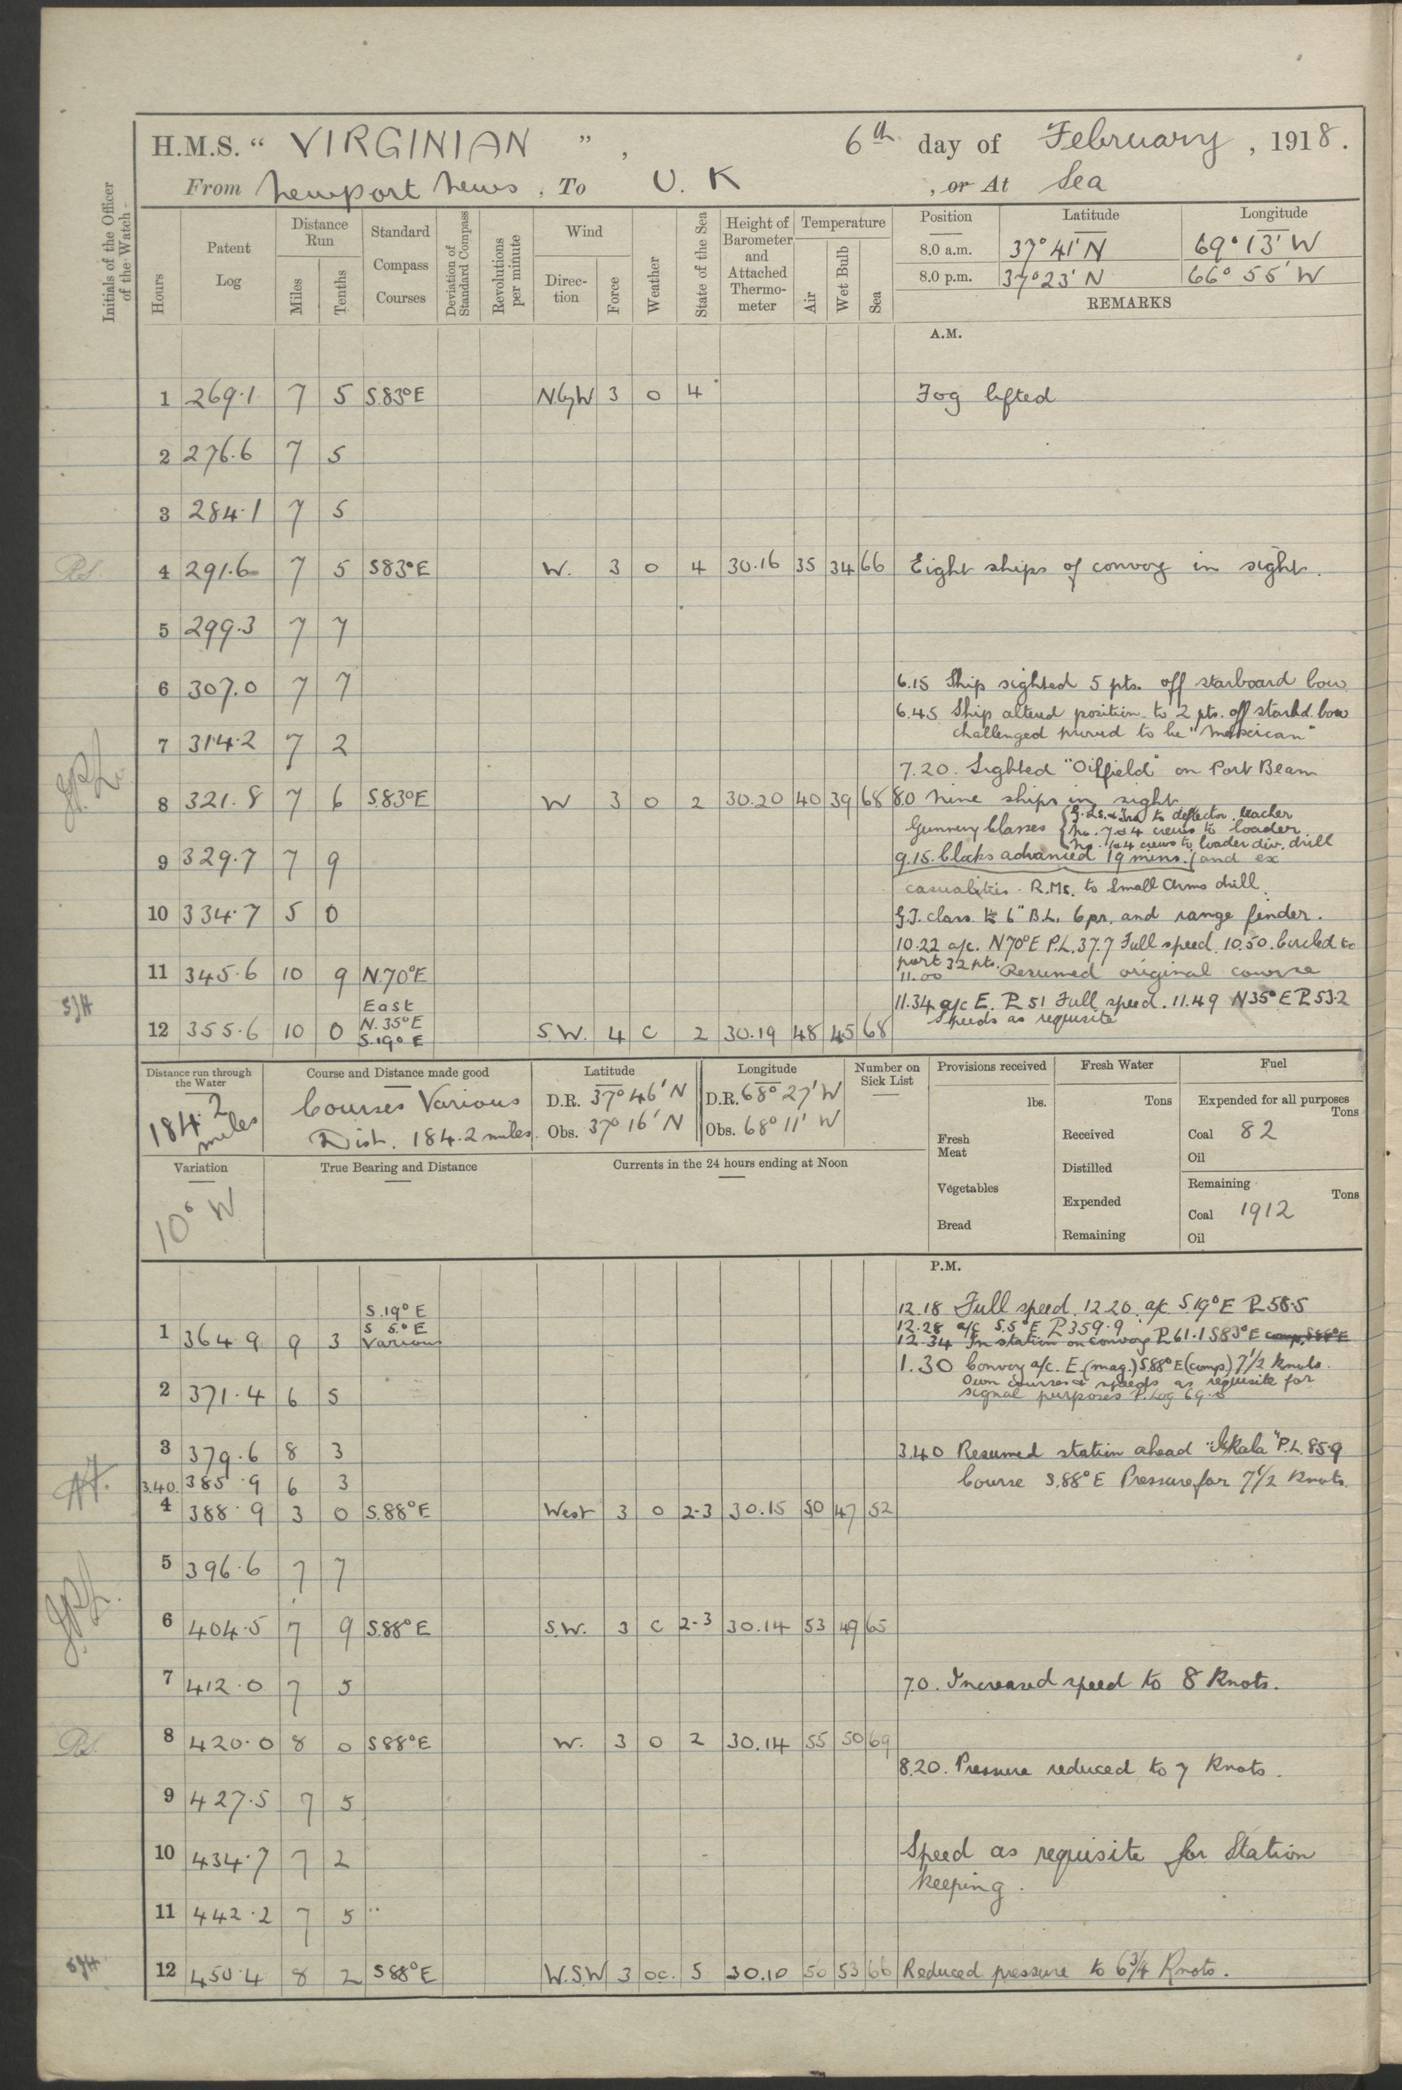 H.M.S. " VIRGINIAN " , 6th day of February , 1918.
From Newport News , To U. K , or At Sea
Initials of the Officer of the Watch
Hours
Patent Log
Distance Run
Miles
Tenths
Standard Compass Courses
Deviation of Standard Compass
Revolutions per minute
Wind
Direction
Force
Weather
State of the Sea
Height of Barometer and Attached Thermometer
Temperature
Air
Wet Bulb
Sea
Position Latitude Longitude
8.0 a.m. 37° 41' N 69° 13' W
8.0 p.m. 37° 23' N 66° 55' W
REMARKS
A.M.
1 269.1 7 5 S.83°E NbyW 3 o 4 Fog lifted
2 276.6 7 5
3 284.1 7 5
4 291.6 7 5 S83°E W. 3 o 4 30.16 35 34 66 Eight ships of convoy in sight.
5 299.3 7 7
6 307.0 7 7 6.15 Ship sighted 5 pts. off starboard bow
6.45 Ship altered position to 2 pts. off starbd. bow
7 314.2 7 2 challenged proved to be "Mexican"
7.20. Sighted "Oilfield" on Port Beam
8 321.8 7 6 S.83°E W 3 o 2 30.20 40 39 68 8.0 Nine ships in sight
Gunnery Classes to deflector teacher
crews to loader
crews to loader div. drill
9 329.7 7 9 9.15. Clocks advanced 19 mins. and ex
casualties. R.Ms. to Small Arms drill.
10 334.7 5 0 G.T. class to 6" B.L. 6pr. and range finder.
10.22 a/c. N70°E P.L. 37.7 Full speed. 10.50. Circled to
port 32 pts.
11 345.6 10 9 N.70°E 11.00 Resumed original course
11.34 a/c E. PL 51 Full speed. 11.49 N35°E PL 53.2
Speeds as requisite
East
N.35°E
12 355.6 10 0 S.19°E S.W. 4 c 2 30.19 48 45 68
Distance run through the Water
184.2 miles
Course and Distance made good
Courses Various
Dist. 184.2 miles.
Latitude
D.R. 37° 46' N
Obs. 37° 16' N
Longitude
D.R. 68° 27' W
Obs. 68° 11' W
Number on Sick List
Provisions received
lbs.
Fresh Meat
Vegetables
Bread
Fresh Water
Tons
Received
Distilled
Expended
Remaining
Fuel
Expended for all purposes
Tons
Coal 82
Oil
Remaining
Tons
Coal 1912
Oil
Variation
10° W
True Bearing and Distance
Currents in the 24 hours ending at Noon
P.M.
S.19°E 12.18 Full speed. 12.20. a/c S.19°E PL 58.5
S 5°E 12.28 a/c S.5°E PL 359.9
1 364.9 9 3 Various 12.34 In station on convoy PL 61.1 S83°E comp. S88°E
1.30 Convoy a/c. E. (mag.) S88°E (comp.) 7 1/2 knots.
Own courses & speeds as requisite for
2 371.4 6 5 signal purposes P. Log 69.0
3 379.6 8 3 3.40 Resumed station ahead P.L. 85.9
3.40. 385.9 6 3 Course S.88°E Pressure for 7 1/2 knots.
4 388.9 3 0 S.88°E West 3 o 2-3 30.15 50 47 52
5 396.6 7 7
6 404.5 7 9 S.88°E S.W. 3 c 2-3 30.14 53 49 65
7 412.0 7 5 7.0. Increased speed to 8 knots.
8 420.0 8 0 S88°E W. 3 o 2 30.14 55 50 69
8.20. Pressure reduced to 7 knots.
9 427.5 7 5
10 434.7 7 2 Speed as requisite for Station
keeping.
11 442.2 7 5
12 450.4 8 2 S88°E W.S.W 3 oc. 5 30.10 50 53 66 Reduced pressure to 6 3/4 Knots.